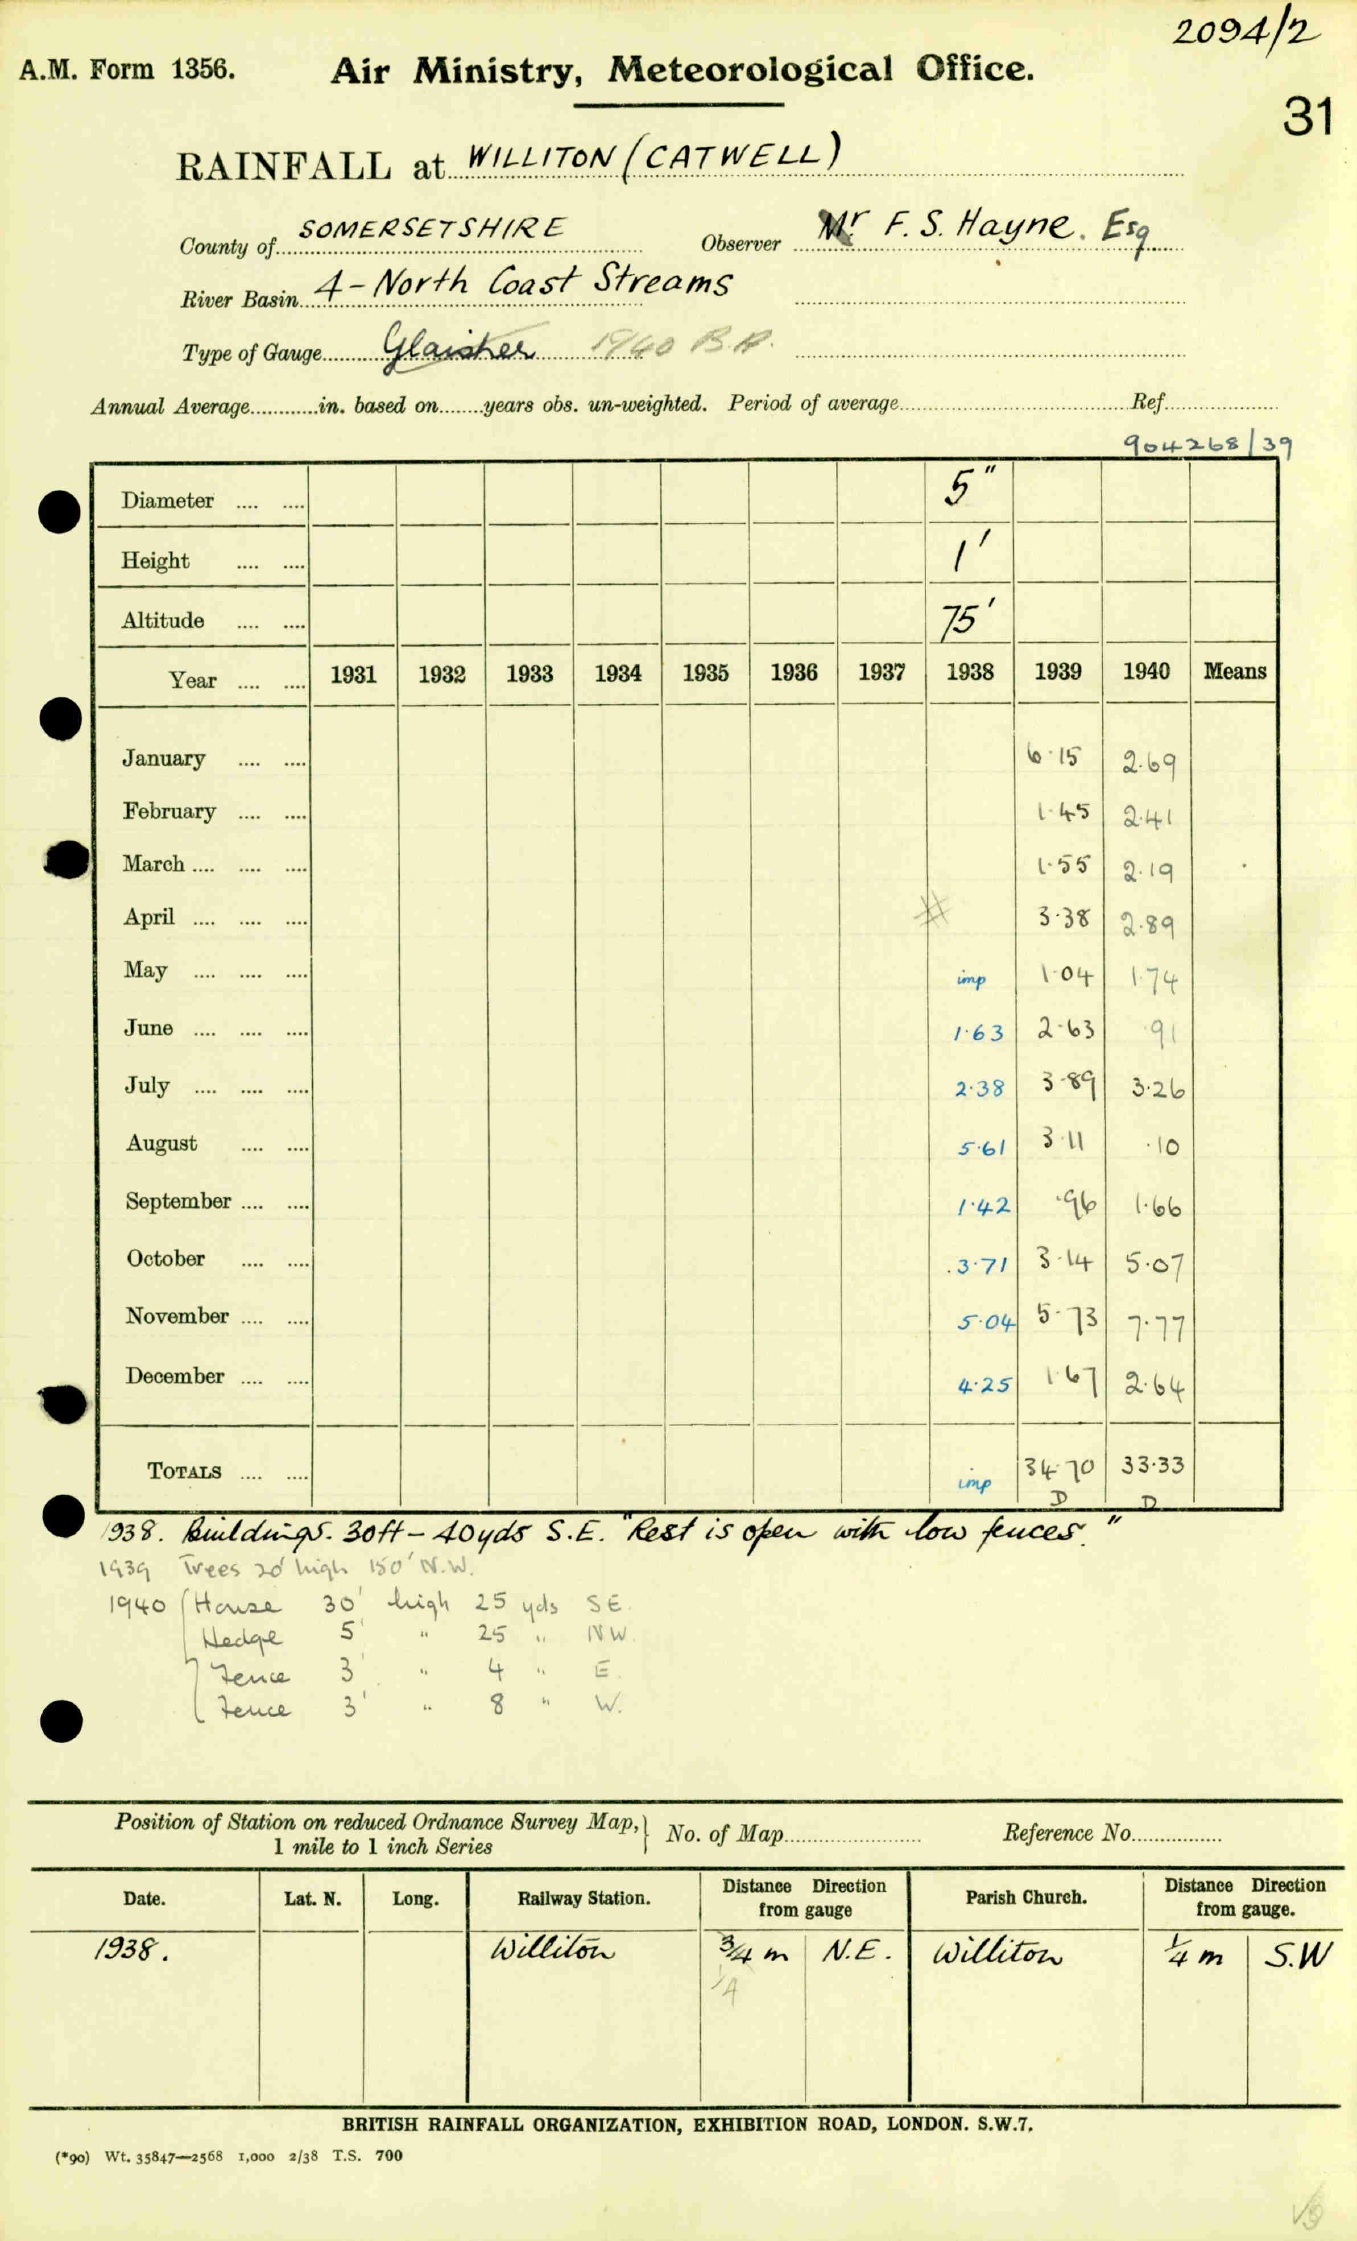 2094/2
A.M. Form 1356. Air Ministry, Meteorological Office.
31
RAINFALL at WILLITON (CATWELL)
County of SOMERSETSHIRE Observer Mr F. S. Hayne. Esq
River Basin 4 - North Coast Streams
Type of Gauge Glaisher 1940 B.R.
Annual Average............in. based on........years obs. un-weighted. Period of average........Ref........
904268/39
Diameter .... .... 5"
Height .... .... 1'
Altitude .... .... 75'
Year .... .... 1931 1932 1933 1934 1935 1936 1937 1938 1939 1940 Means
January .... .... 6·15 2·69
February .... .... 1·45 2·41
March .... .... .... 1·55 2·19
April .... .... .... # 3·38 2·89
May .... .... .... imp 1·04 1·74
June .... .... .... 1·63 2·63 ·91
July .... .... .... 2·38 3·89 3·26
August .... .... 5·61 3·11 ·10
September .... .... 1·42 ·96 1·66
October .... .... 3·71 3·14 5·07
November .... .... 5·04 5·73 7·77
December .... .... 4·25 1·67 2·64
TOTALS .... .... imp 34·70 33·33
D D
1938. Buildings. 30ft - 40yds S.E. "Rest is open with low fences."
1939 Trees 20' high 150' N.W.
1940 House 30' high 25 yds SE.
Hedge 5' " 25 " NW.
Fence 3' " 4 " E.
Fence 3' " 8 " W.
Position of Station on reduced Ordnance Survey Map, 1 mile to 1 inch Series } No. of Map........ Reference No........
Date. Lat. N. Long. Railway Station. Distance Direction from gauge Parish Church. Distance Direction from gauge.
1938. Williton 3/4 m N.E. Williton 1/4 m S.W
1/4
BRITISH RAINFALL ORGANIZATION, EXHIBITION ROAD, LONDON. S.W.7.
(*90) Wt. 35847—2568 1,000 2/38 T.S. 700